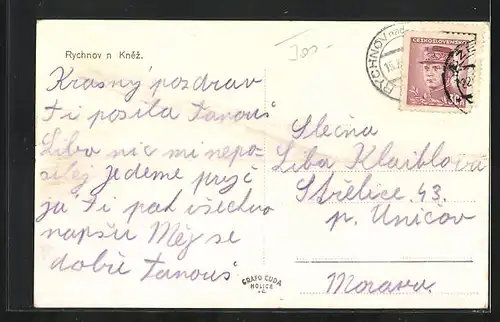 Rychnov n Kněž.
Krásný pozdrav
Ti posílá Tanouš
Libo nic mi nepo=
sílej jedeme pryč
já Ti pak všechno
napíšu Měj se
dobře Tanouš
RYCHNOV nad
ČESKOSLOVENSKO
Slečna
Liba Klaiblová
Střelice 43.
p. Unicov
Morava.
GRAFO ČUDA
HOLICE